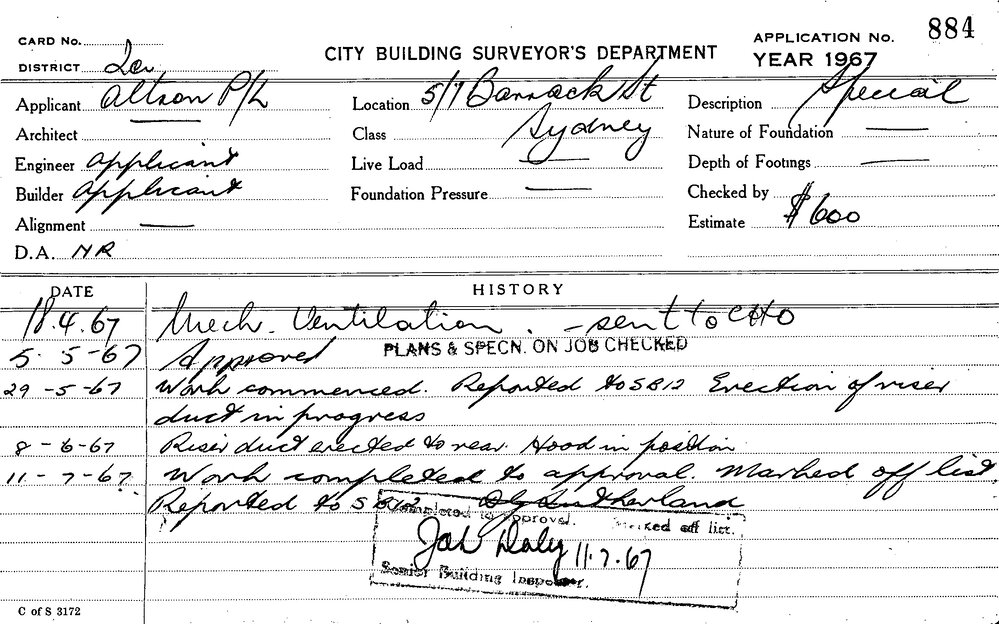 884
CARD No.
DISTRICT
CITY BUILDING SURVEYOR'S DEPARTMENT
APPLICATION No.
YEAR 1967
Applicant Altson P/L
Location 5/7 Barrack St
Description Special
Architect
Class Sydney
Nature of Foundation —
Engineer Applicant
Live Load —
Depth of Footings —
Builder Applicant
Foundation Pressure —
Checked by
Alignment —
Estimate $600
D.A. NR
DATE HISTORY
18.4.67 Mech. Ventilation. - sent to CHO
5-5-67 Approved PLANS & SPECN. ON JOB CHECKED
29-5-67 Work commenced. Reported to SB12 Erection of riser
duct in progress
8-6-67 Riser duct erected to rear. Hood in position
11-7-67 Work completed to approval. Marked off list.
Reported to SB12 Sutherland
Completed to approval. Marked off list.
Daly 11.7.67
Senior Building Inspector.
C of S 3172